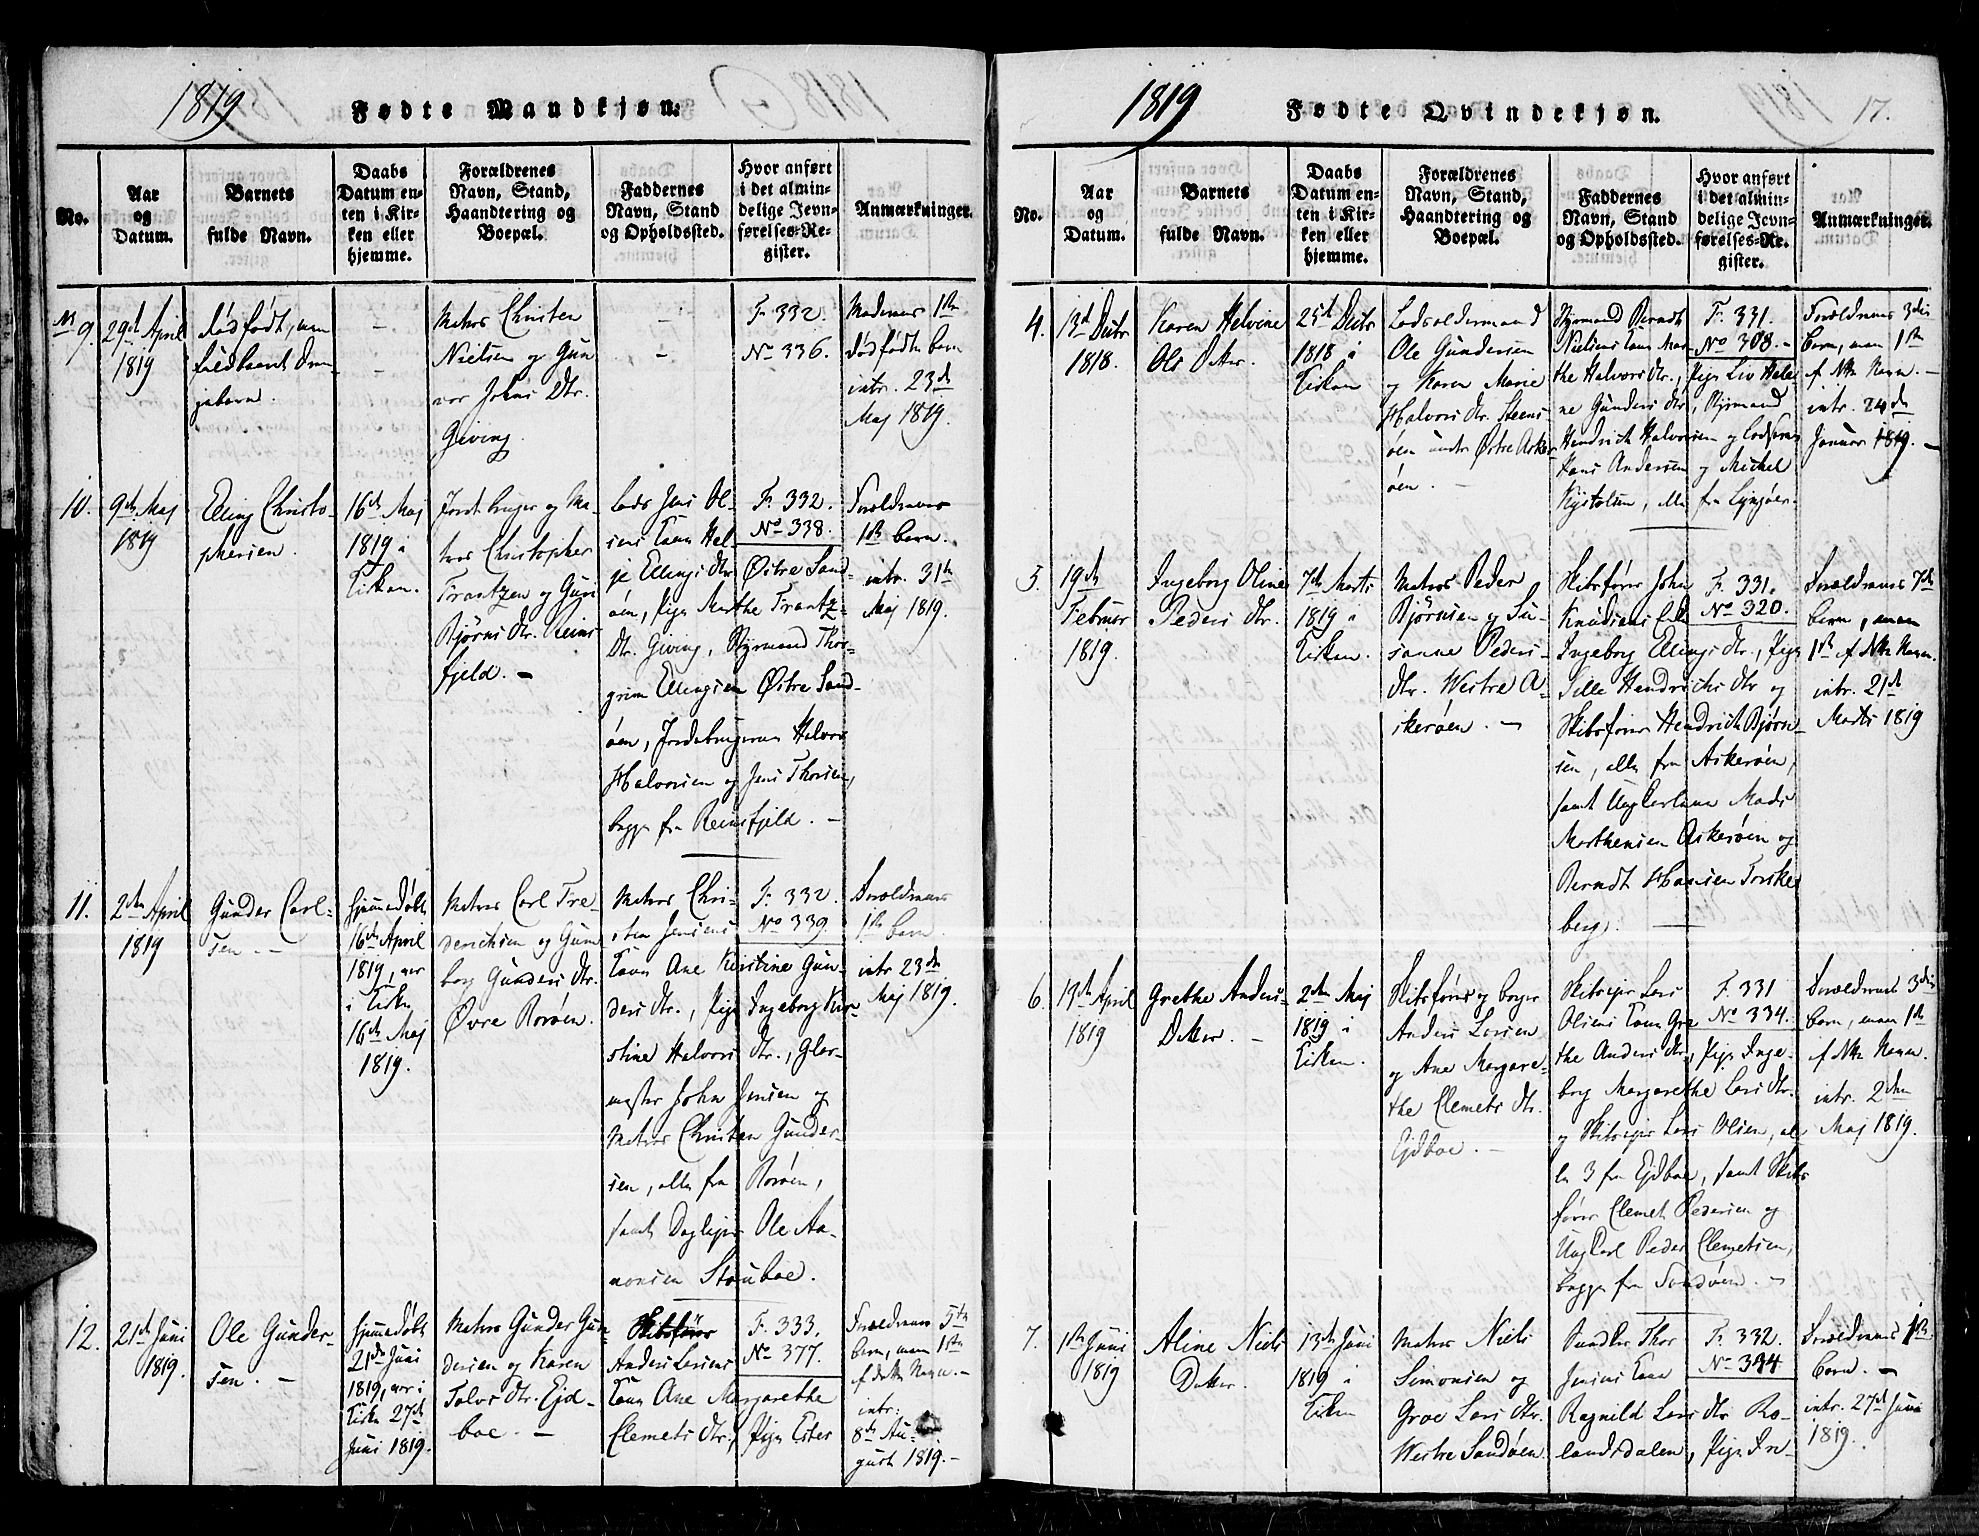 1819
Fødte Mandkjøn.
No.
Aar
og
Datum.
Barnets
fulde Navn.
Daabs
Datum en-
ten i Kir-
ken eller
hjemme.
Forældrenes
Navn, Stand,
Haandtering og
Boepæl.
Faddernes
Navn, Stand
og Opholdssted.
Hvor anført
i det almin-
delige Jevn-
førelses-Re-
gister.
Anmærkninger.
9.
29de April
1819
dødfødt,
Matros Christen
Nielsen og Gun-
vor Johns Dtr.
Giving.
F. 332.
No 336.
1ste
dødfødte barn
intr. 23de
Maj 1819.
10.
9de Maj
1819
Elling Christo-
phersen.
16de Maj
1819 i
Kirken.
Jordbruger og Ma-
tros Christopher
Frantzen og Guri
Bjørns Dtr. Reins-
fjeld. -
Lods Jens Ol-
sens Kone Hel-
je Ellings Dtr Østre Sand-
øen, Pige Marthe Frantz
Dtr. Giving, Styrmand Thor-
grim Ellingsen Østre Sand-
øen, Jordbrugerne Halvor
Halvorsen og Jens Thorsen,
begge fra Reinsfjeld. -
F. 332.
No 338.
Forældrenes
1ste barn.
intr. 31te
Maj 1819.
11.
2den April
1819
Gunder Carl-
sen. -
hjemmedøbt
16de April
1819, var
i Kirken
16de Maj
1819.
Matros Carl Fre-
derichsen og Gun-
borg Gunders Dtr.
Øvre Rorøen.
Matros Chri-
sten Jensens
Kone Ane Kirstine Gun-
ders Dtr., Pige Ingeborg Kir-
stine Halvors Dtr., Glar-
mester John Jensen og
Matros Christen Gunder-
sen, alle fra Rorøen,
samt Ole Aa-
monsen Stouboe.
F. 332.
No 339.
Forældrenes
1ste barn.
intr 23de
Maj 1819.
12.
21de Juni
1819.
Ole Gunder-
sen. -
hjemmedøbt
21de Juni
1819, var i
Kirken 27de
Juni 1819.
Matros Gunder Gun-
dersen og Karen
Tolvs Dtr. Ejd-
boe. -
Skibsfører
Anders Larsens
Kone Ane Margarethe
Clemets Dtr, Pige Ester
F. 333.
No 377.
Forældrenes 5te
barn, men 1ste
af dette Navn. -
intr:
8de Au-
gust 1819. -
1819
Fødte Qvindekjøn.
17.
No.
Aar
og
Datum.
Barnets
fulde Navn.
Daabs
Datum en-
ten i Kir-
ken eller
hjemme.
Forældrenes
Navn, Stand,
Haandtering og
Boepæl.
Faddernes
Navn, Stand
og Opholdssted.
Hvor anført
i det almin-
delige Jevn-
førelses-Re-
gister.
Anmærkninger.
4.
13de Decbr
1818.
Karen Helvine
Ols Dotter.
25de Decbr
1818 i
Kirken
Lodsoldermand
Ole Gundersen
og Karen Marie
Halvors Dtr. Steens-
øen under Østre Asker-
øen. -
Styrmand Berndt
Nielsens Kone Mar-
the Halvors Dtr., Pige Liv Hele-
ne Gunders Dtr, Styrmand
Hendrich Halvorsen og
Hans Andersen og Michel
Kystolsen, alle fra Lyngøer.
F. 331.
No 308. -
Forældrenes 3die
barn, men 1ste
af dette Navn. -
intr. 24de
Januar 1819. -
5.
19de
Februar
1819.
Ingeborg Oline
Peders Dtr.
7de Marts
1819 i
Kirken.
Matros Peder
Bjørnsen og Su-
sanne Peders-
Dtr. Westre A-
skerøen. -
Skibsfører John
Knudsens
Ingeborg Ellings Dtr., Pige
Sille Hendrichs Dtr og
Skibsfører Hendrich Bjørn-
sen, alle fra Askerøen,
samt Ungkarlene Mads
Marthensen Askerøen og
Berndt Hansen Torske-
berg.
F. 331.
No 320.
Forældrenes 7de
barn, men
1ste af dette Navn.
intr. 21de
Marts 1819
6.
13de April
1819
Grethe Anders-
Dotter. -
2den Maj
1819 i
Kirken.
Skibsfører og borger
Anders Larsen
og Ane Margare-
the Clemets Dtr.
Ejdboe. -
Skibsejer Lars
Olsens Kone Gre-
the Anders Dtr, Pige Inge-
borg Margarethe Lars Dtr.
og Skibsejer Lars Olsen, al-
le 3 fra Ejdboe, samt Skibs-
fører Clemet Pedersen og
Ungkarl Peder Clemetsen,
begge fra Sandøen. -
F. 331
No 334.
Forældrenes 3die
barn, men 1ste
af dette Navn.
intr. 2den
Maj 1819.
7.
1ste Juni
1819
Aline Niels
Dotter.
13de Juni
1819 i
Kirken
Matros Niels
Simonsen og
Groe Lars Dtr.
Westre Sandøen.
Thor
Jensens Kone
Ragnild Lars Dtr Ro-
landsdalen, Pige
F. 332.
No 344
Forældrenes 1ste
barn. -
intr. 27de Juni
1819.